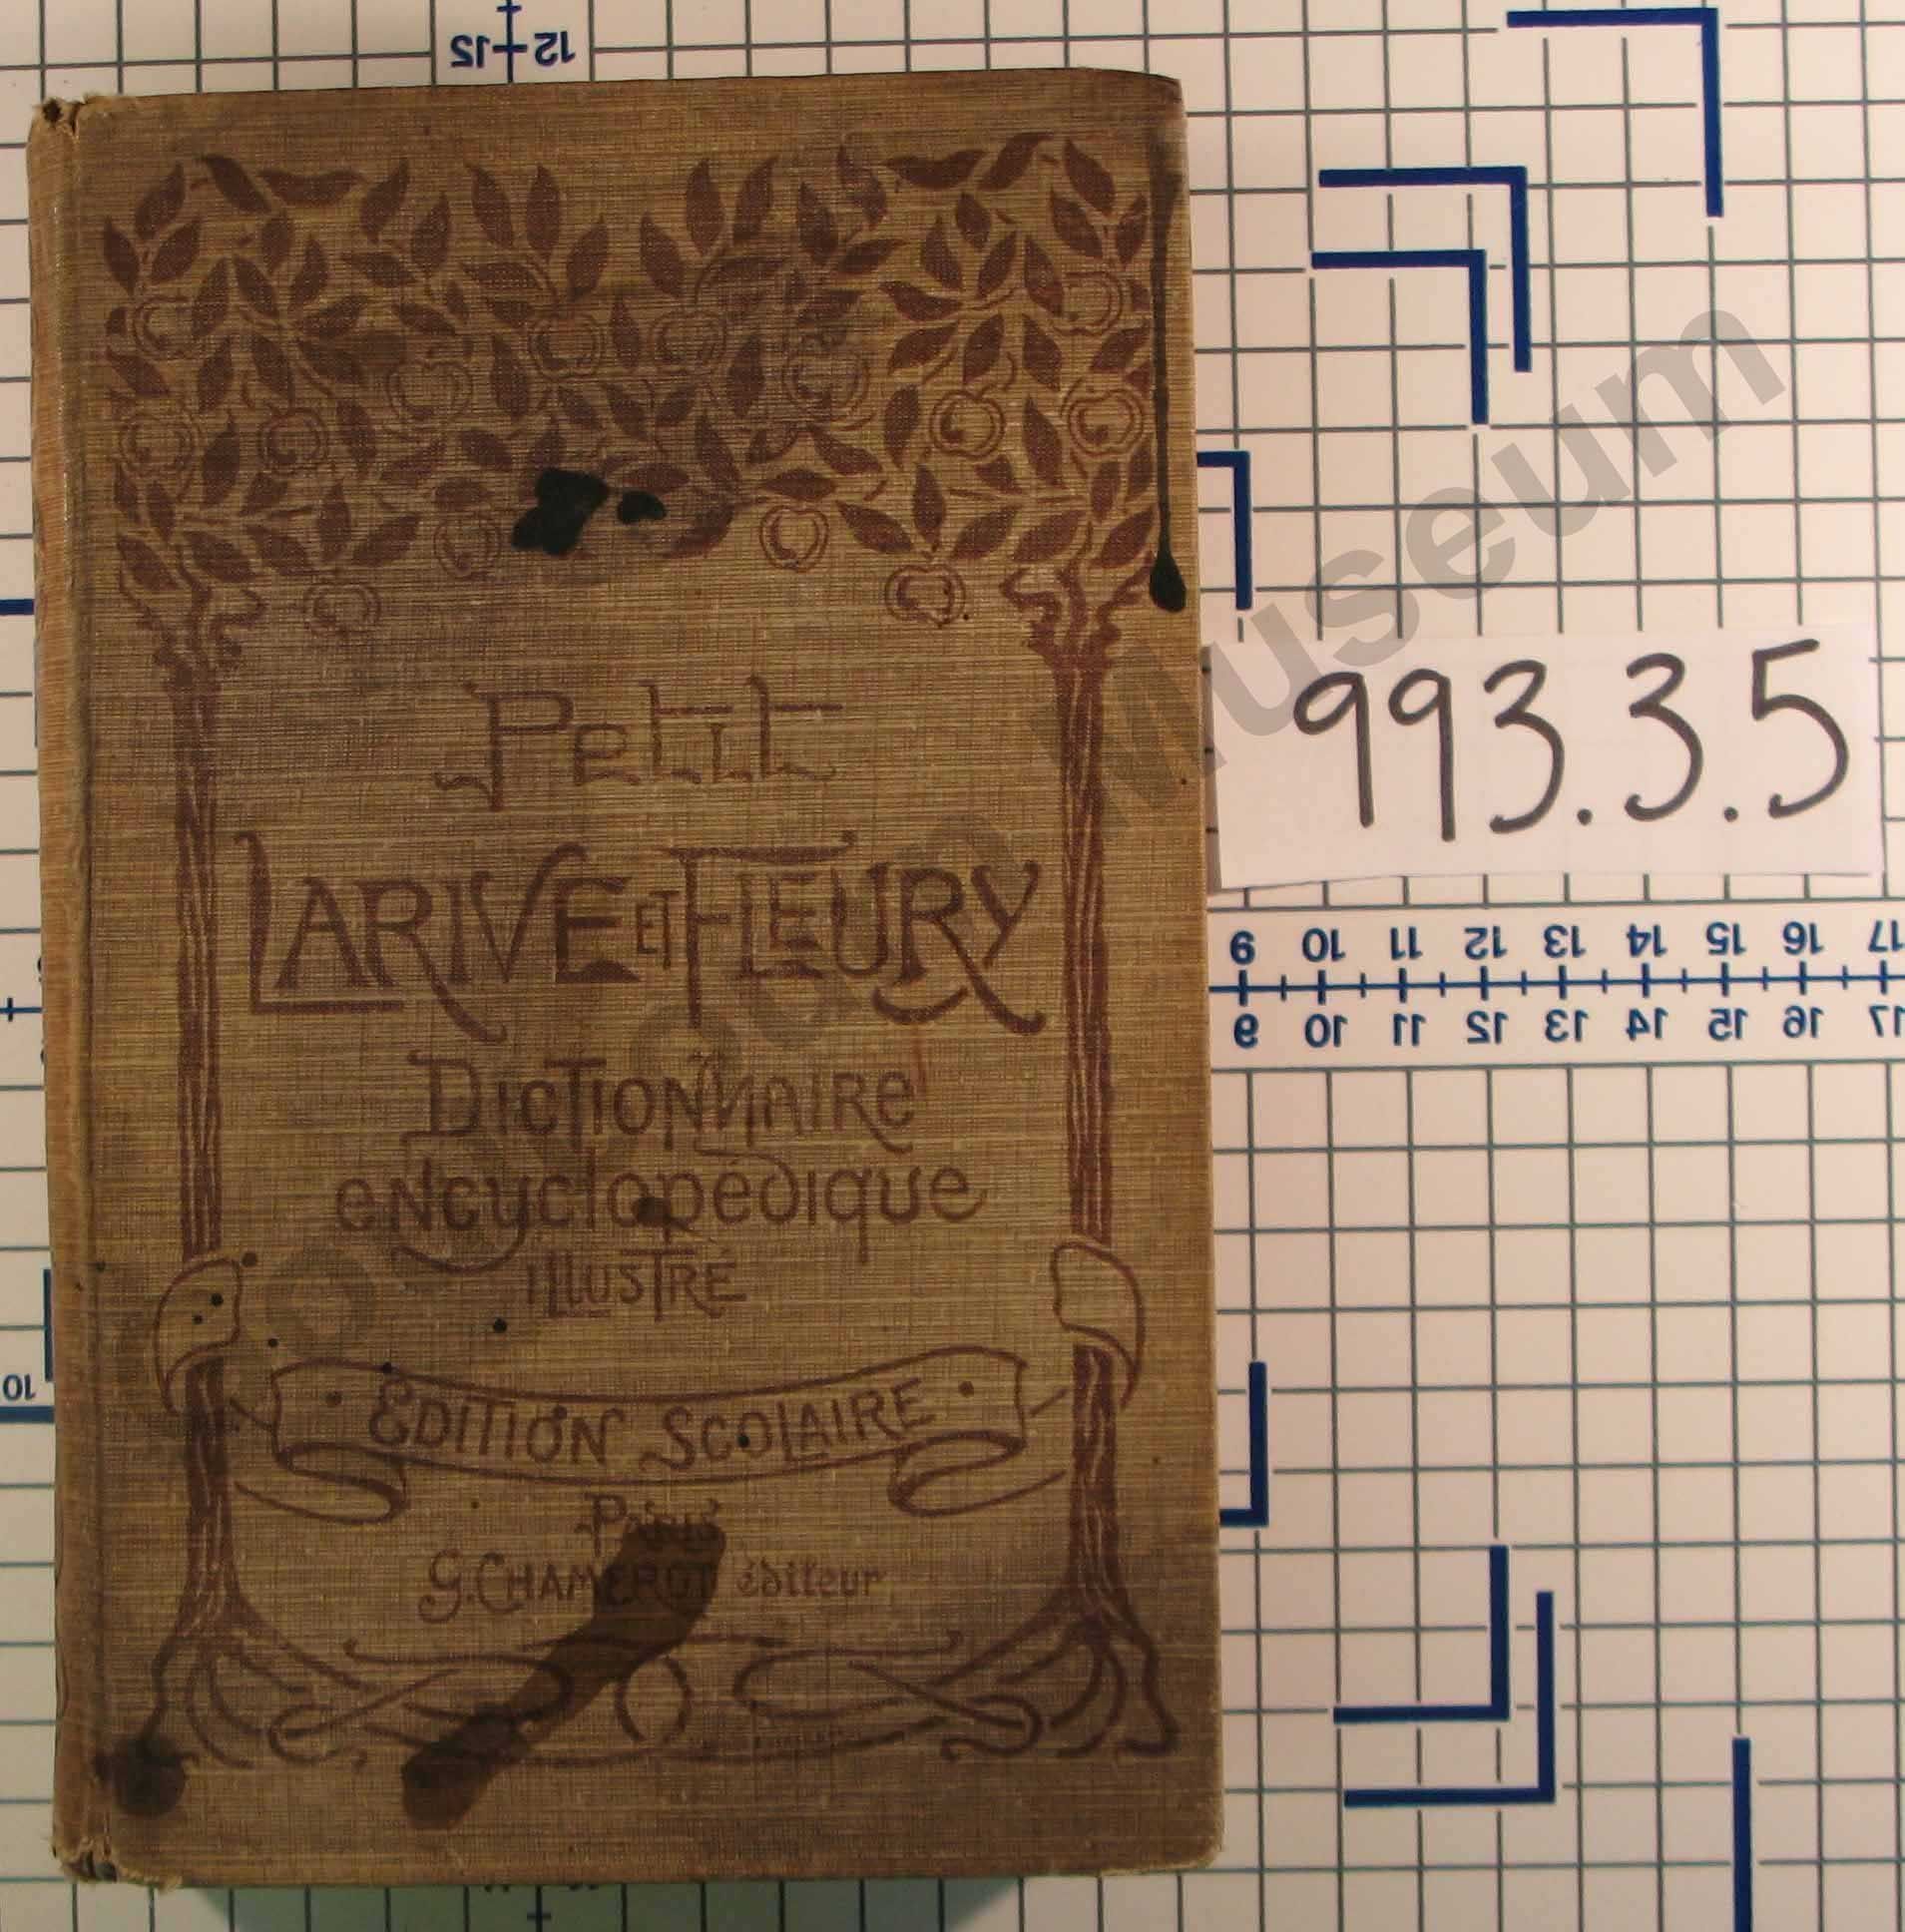 Petit
LARIVE ET FLEURY
DICTIONNAIRE
encyclopédique
ILLUSTRÉ
EDITION SCOLAIRE
PARIS
G. CHAMEROT éditeur
993.3.5
Museum
12 12
9 10 11 12 13 14 15 16 17
9 10 11 12 13 14 15 16 17
10